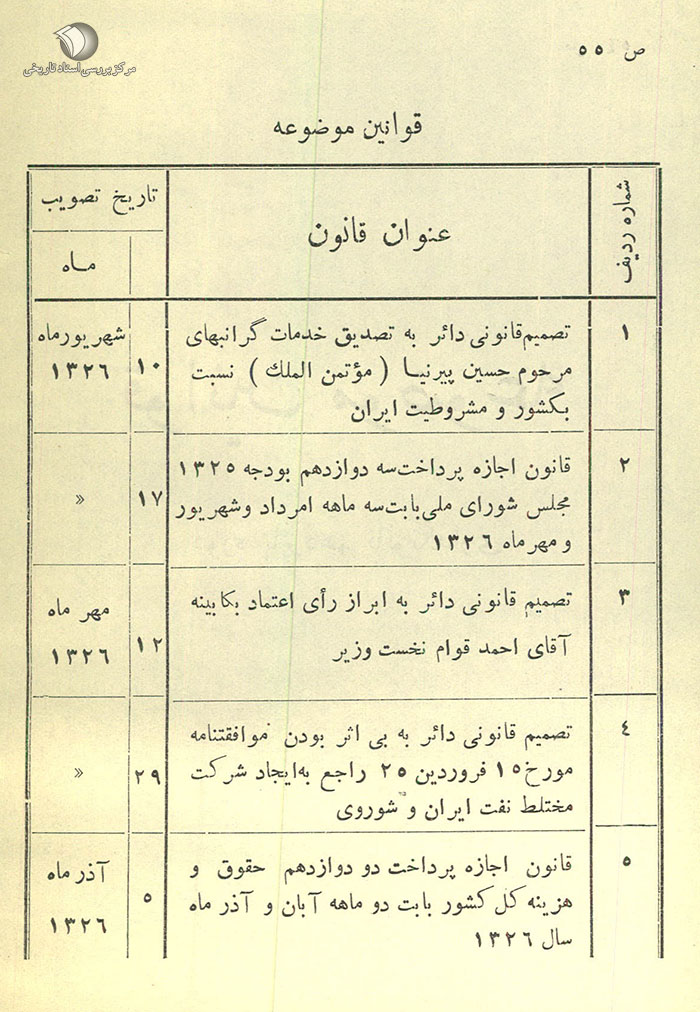 مرکز بررسی اسناد تاریخی
ص ٥٥
قوانین موضوعه
شماره ردیف
عنوان قانون
تاریخ تصویب
ماه
١
تصمیم‌قانونی دائر به تصدیق خدمات گرانبهای
مرحوم حسین پیرنیا (مؤتمن الملك) نسبت
بکشور و مشروطیت ایران
١٠
شهریورماه
١٣٢٦
٢
قانون اجازه پرداخت‌سه دوازدهم بودجه ١٣٢٥
مجلس شورای ملی‌بابت‌سه ماهه امرداد وشهریور
و مهرماه ١٣٢٦
١٧
»
٣
تصمیم قانونی دائر به ابراز رأی اعتماد بکابینه
آقای احمد قوام نخست وزیر
١٢
مهر ماه
١٣٢٦
٤
تصمیم قانونی دائر به بی اثر بودن موافقتنامه
مورخ ١٥ فروردین ٢٥ راجع به‌ایجاد شرکت
مختلط نفت ایران و شوروی
٢٩
»
٥
قانون اجازه پرداخت دو دوازدهم حقوق و
هزینه کل کشور بابت دو ماهه آبان و آذر ماه
سال ١٣٢٦
٥
آذر ماه
١٣٢٦